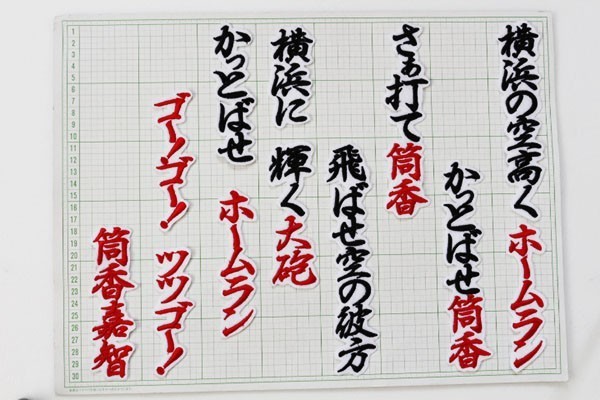 横浜の空高く ホームラン
かっとばせ筒香
さぁ打て筒香
飛ばせ空の彼方
横浜に 輝く大砲
かっとばせ ホームラン
ゴーゴー! ツツゴー!
筒香嘉智
1
2
3
4
5
6
7
8
9
10
11
12
13
14
15
16
17
18
19
20
21
22
23
24
25
26
27
28
29
30